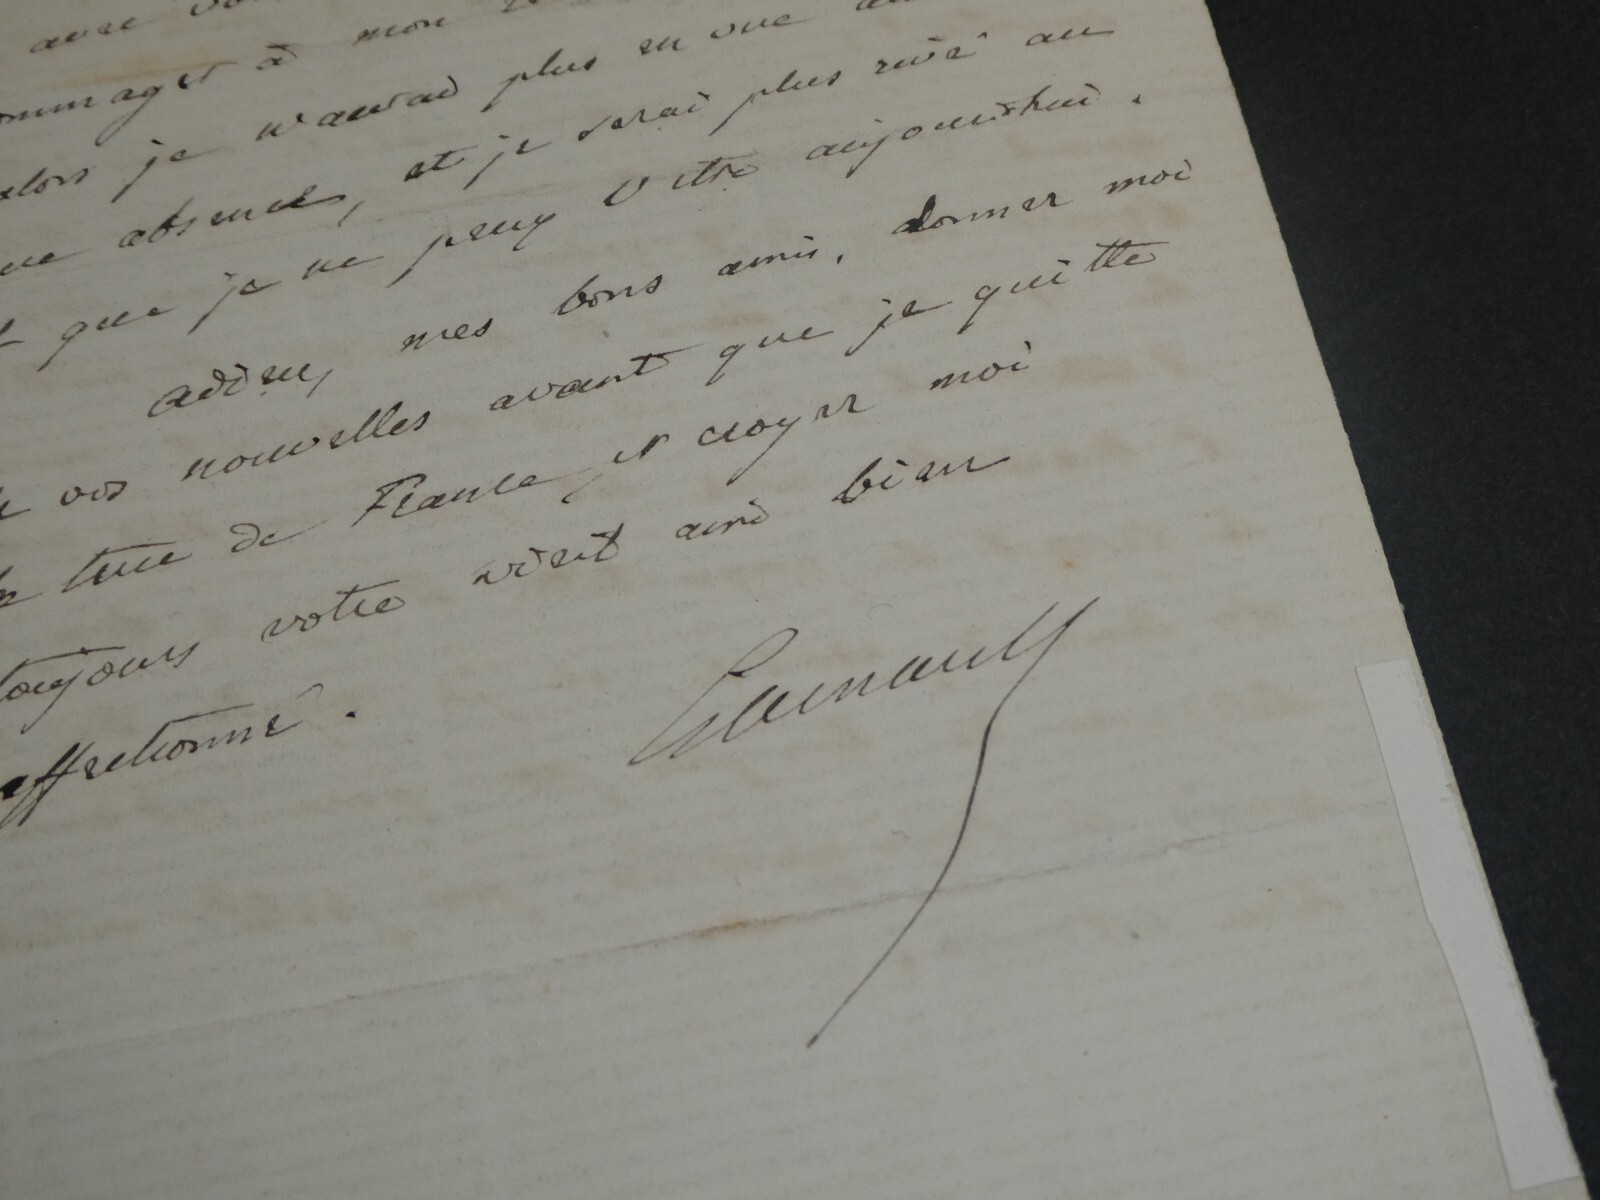 avec
à mon
alors je n'aurai plus en vue
absence, et je serai plus rivé au
que je ne peux l'être aujourd'hui.
adieu, mes bons amis, donner moi
vos nouvelles avant que je quitte
terre de France, et croyez moi
toujours votre vieil ami bien
affectionné.